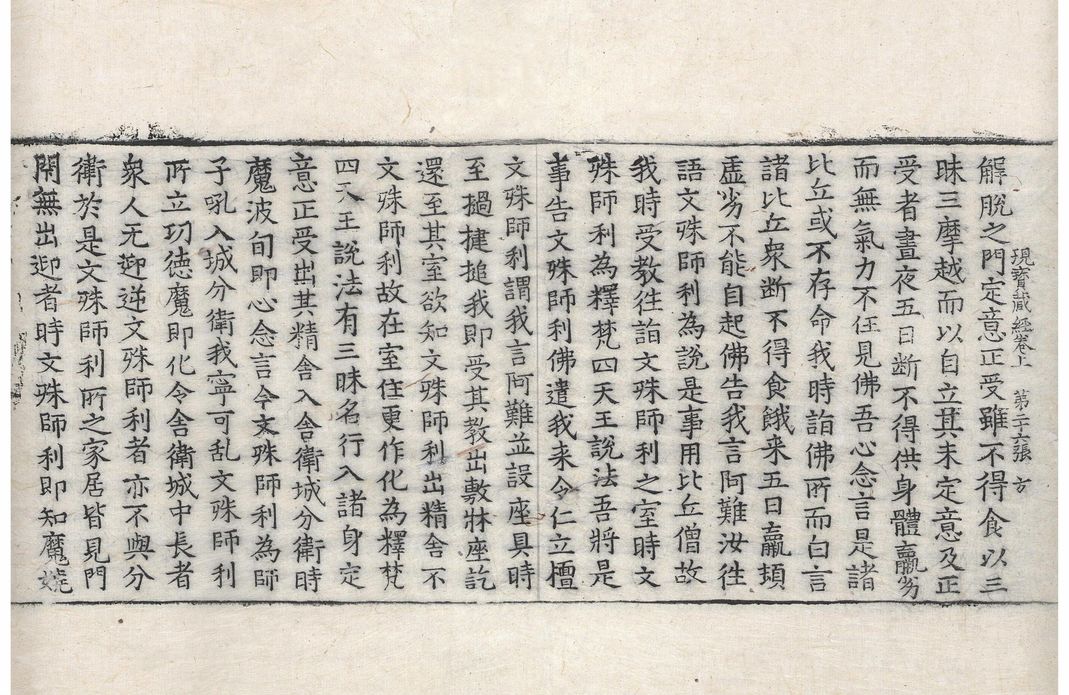 現寶藏經卷上　第二十六張　方
解脫之門定意正受雖不得食以三
昧三摩越而以自立其未定意及正
受者晝夜五日斷不得供身體羸劣
而無氣力不任見佛吾心念言是諸
比丘或不存命我時詣佛所而白言
諸比丘衆断不得食餓来五日羸頓
虛劣不能自起佛告我言阿難汝徃
語文殊師利為說是事用比丘僧故
我時受教徃詣文殊師利之室時文
殊師利為釋梵四天王說法吾將是
事告文殊師利佛遣我来令仁立檀
文殊師利謂我言阿難並設座具時
至撾揵搥我即受其教出敷牀座訖
還至其室欲知文殊師利出精舍不
文殊師利故在室住更作化為釋梵
四天王說法有三昧名行入諸身定
意正受出其精舍入舍衛城分衛時
魔波旬即心念言今文殊師利為師
子吼入城分衛我寧可乱文殊師利
所立功德魔即化令舍衛城中長者
衆人无迎逆文殊師利者亦不與分
衛於是文殊師利所之家居皆見門
閇無出迎者時文殊師利即知魔嬈